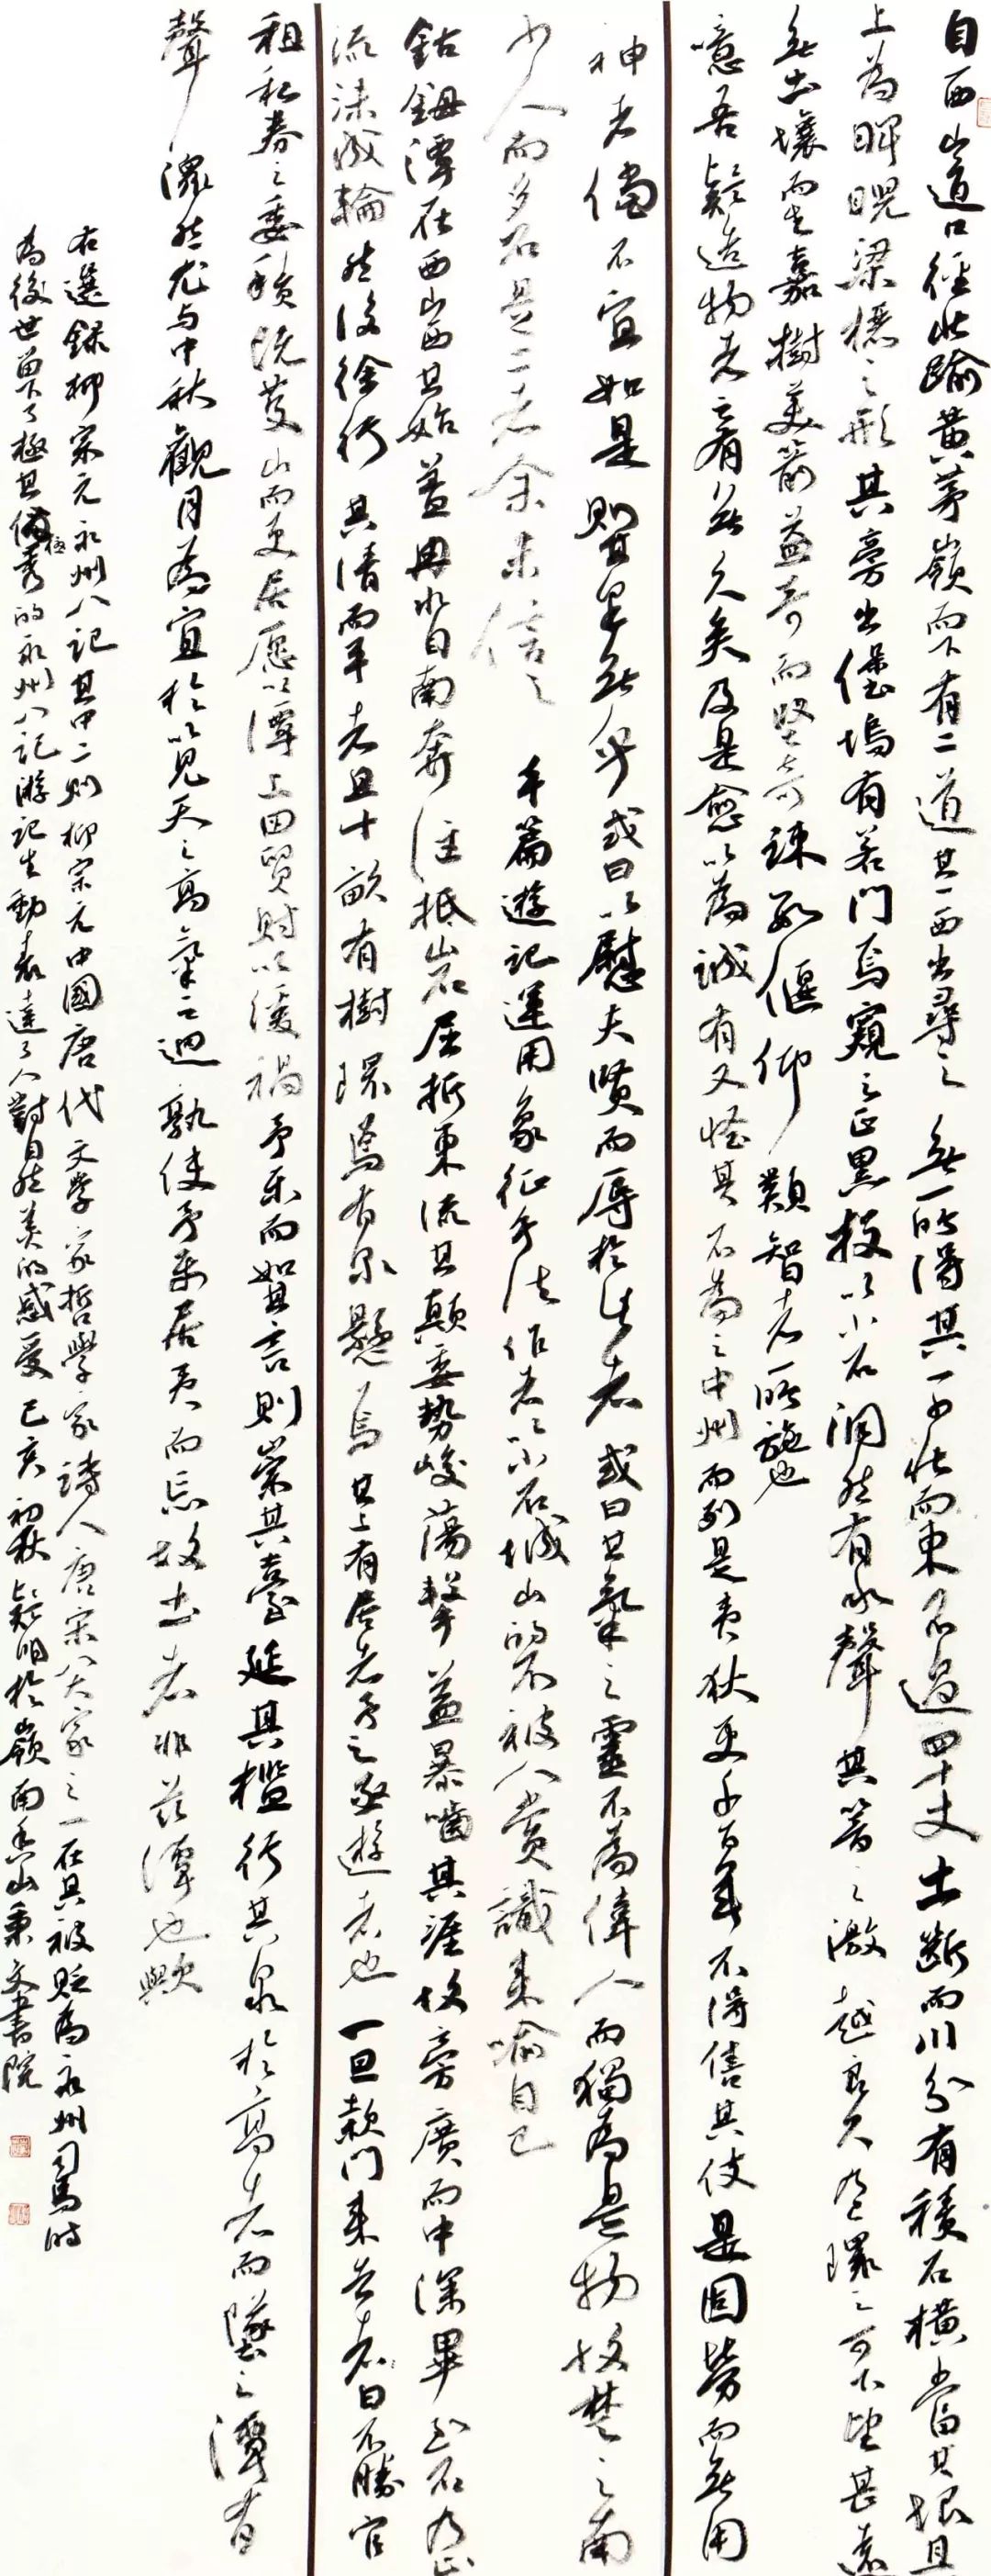 自西山道口徑北踰黃茅嶺而下有二道其一西出尋之無所得其一少北而東不過四十丈土斷而川分有積石橫當其垠其
上為睥睨梁欐之形其旁出堡塢有若門焉窺之正黑投以小石洞然有水聲其響之激越良久乃已環之可上望甚遠
無土壤而生嘉樹美箭益奇而堅奇疎數偃仰類智者所施也
噫吾疑造物者之有無久矣及是愈以為誠有又怪其不為之中州而列是夷狄更千百年不得售其伎是固勞而無用
神者儻不宜如是則其果無乎或曰以慰夫賢而辱於此者或曰其氣之靈不為偉人而獨為是物故楚之南
少人而多石是二者余未信之 本篇遊記運用象征手法作者以小石城山的不被人賞識來喻自己
鈷鉧潭在西山西其始蓋冉水自南奔注抵山石屈折東流其顛委勢峻蕩擊益暴嚙其涯故旁廣而中深畢至石乃止
流沫成輪然後徐行其清而平者且十畝有樹環焉有泉懸焉其上有居者予之亟遊者也一旦款門來告者曰不勝官
租私券之委積既芟山而更居願以潭上田貿財以緩禍予樂而如其言則崇其臺延其檻行其泉於高者而墜之潭有
聲潨然尤與中秋觀月為宜於以見天之高氣之迥孰使予樂居夷而忘故土者非茲潭也歟
右選錄柳宗元永州八記其中二則柳宗元中國唐代文學家哲學家詩人唐宋八大家之一在其被貶為永州司馬時
為後世留下了極其優秀的永州八記游記生動表達了人對自然美的感受己亥初秋於嶺南香山秉文書院